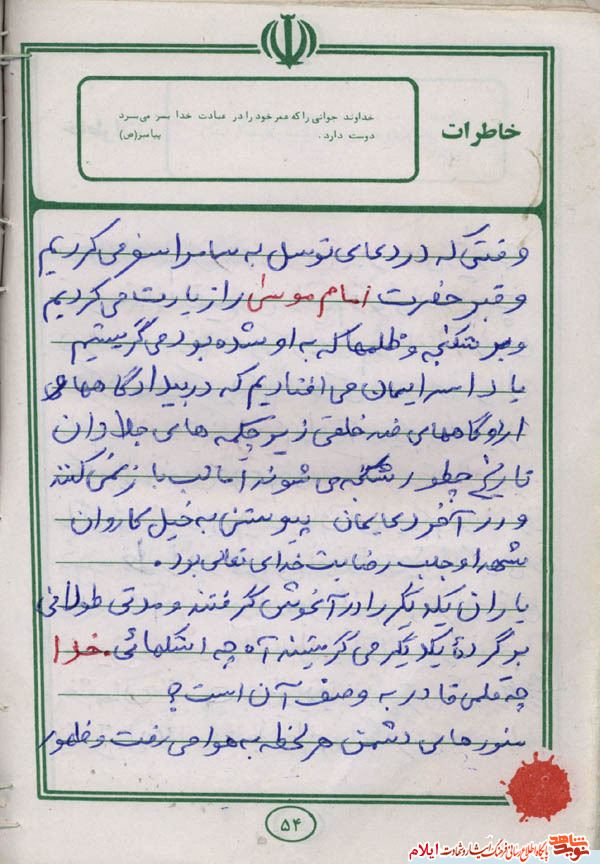 خاطرات
خداوند جوانی را که عمر خود را در عبادت خدا بسر می‌برد
دوست دارد. پیامبر(ص)
وقتی که در دعای توسل به سامرا سفر می کردیم
و قبر حضرت امام موسی را زیارت می کردیم
و بر شکنجه و ظلمها که به او شده بود می گریستیم
یاد اسرایمان می افتادیم که در بیدادگاهها و
اردوگاههای ضد خلقی زیر چکمه های جلادان
تاریخ چطور شکنجه می شوند اما لب باز نمی کنند
و در آخر دعایمان پیوستن به خیل کاروان
شهدا و جلب رضایت خدای تعالی بود.
یاران یکدیگر را در آغوش گرفتند و مدتی طولانی
بر گردهٔ یکدیگر می گریستند آه چه اشکهائی. خدا
چه قلمی قادر به وصف آن است؟
منورهای دشمن هر لحظه به هوا می رفت و ظهور
۵۴
نوید شاهد
پایگاه اطلاع رسانی فرهنگ ایثار و شهادت ایلام